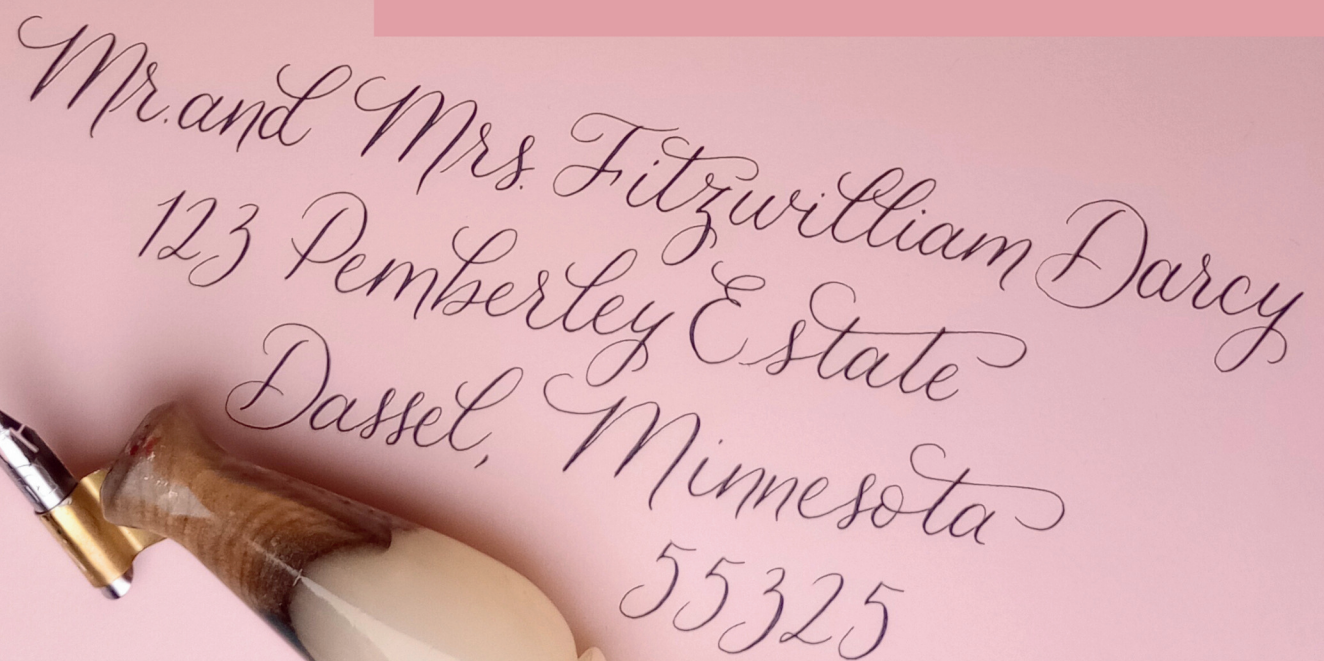 Mr. and Mrs. Fitzwilliam Darcy
123 Pemberley Estate
Dassel, Minnesota
55325